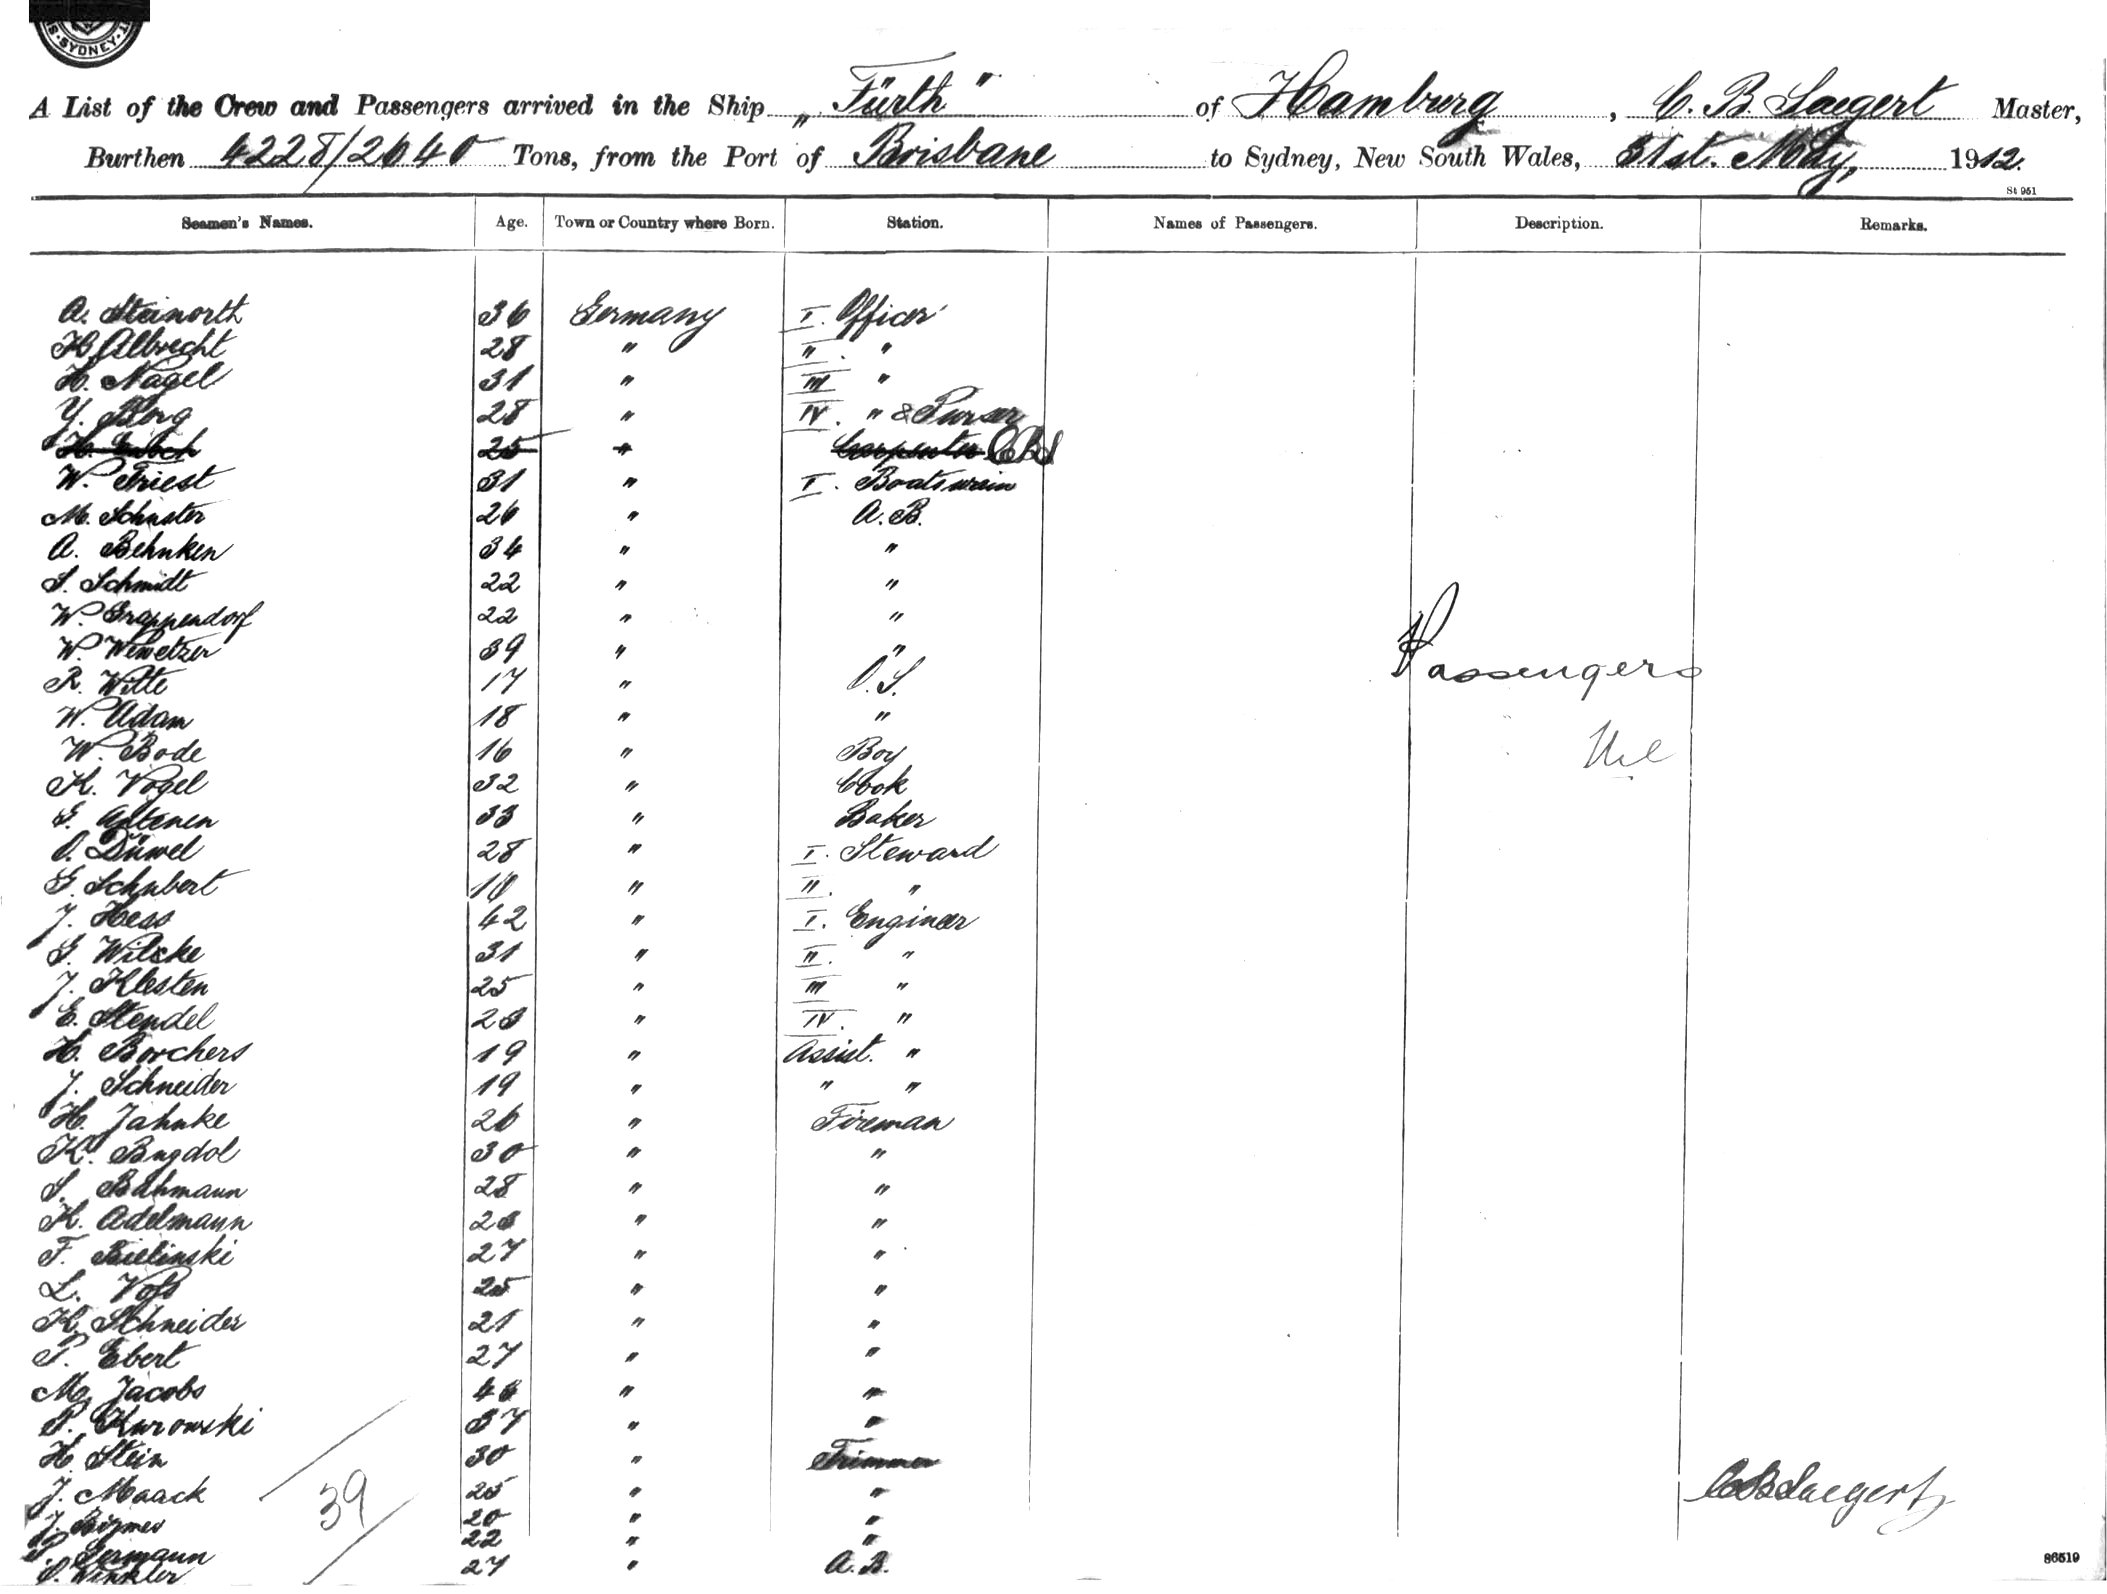 SYDNEY
A List of the Crew and Passengers arrived in the Ship „Fürth" of Hamburg, C. B. Saegert Master,
Burthen 4228/2640 Tons, from the Port of Brisbane to Sydney, New South Wales, 31st. May, 1912.
St 951
Seamen's Names. Age. Town or Country where Born. Station. Names of Passengers. Description. Remarks.
A. Steinorth 36 Germany I. Officer
H. Albrecht 28 " II. "
H. Nagel 31 " III "
Y. Borg 28 " IV. " & Purser
H. 25 " Carpenter CBS
W. Friest 31 " I. Boatswain
M. Schuster 26 " A. B.
A. Behnken 34 " "
S. Schmidt 22 " "
W. Grappendorf 22 " "
W. Wemetzer 39 " "
R. Witte 17 " O. S.
Passengers
W. Adam 18 " "
W. Bode 16 " Boy
Nil
K. Vogel 32 " Cook
G. Antenen 33 " Baker
O. Düwel 28 " I. Steward
G. Schubert 18 " II. "
J. Hess 42 " I. Engineer
G. Wilcke 31 " II. "
J. Klesten 25 " III "
E. Stendel 23 " IV. "
H. Borchers 19 " Assist. "
J. Schneider 19 " " "
H. Jahnke 26 " Fireman
K. Bugdol 30 " "
S. Bahmann 28 " "
K. Adelmann 23 " "
F. Bielinski 27 " "
L. Voß 25 " "
H. Schneider 21 " "
P. Ebert 27 " "
M. Jacobs 46 " "
P. Kurowski 37 " "
H. Stein 30 " Trimmer
J. Maack 25 " "
39
C B Saegert
J. 20 " "
P. Germann 22 " "
S. Winkler 27 " A. B.
86519